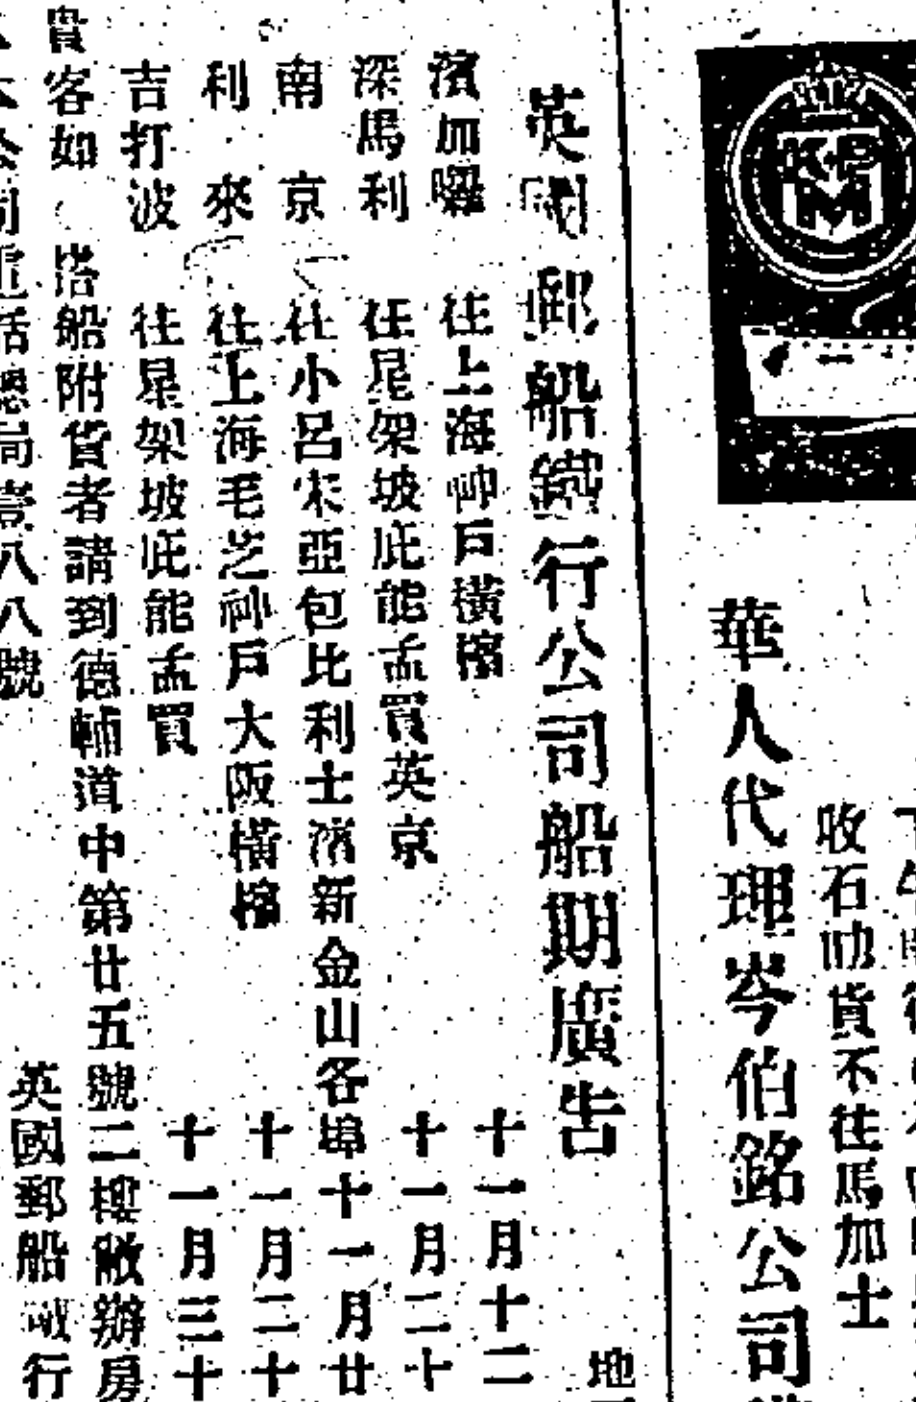 KPM
收石叻貨不往馬加士
華人代理岑伯銘公司
英國郵船鐵行公司船期廣告
地
濱加囉 往上海神戶橫檳 十一月十二
深馬利 往星架坡庇能孟買英京 十一月二十
南京 往小呂宋亞包比利士濱新金山各埠 十一月廿
利來 往上海毛芝神戶大阪橫檳 十一月二十
吉打波 往星架坡庇能孟買 十一月三十
貴客如 搭船附貨者請到德輔道中第廿五號二樓敝辦房
公司電話總局壹八八號 英國郵船 行